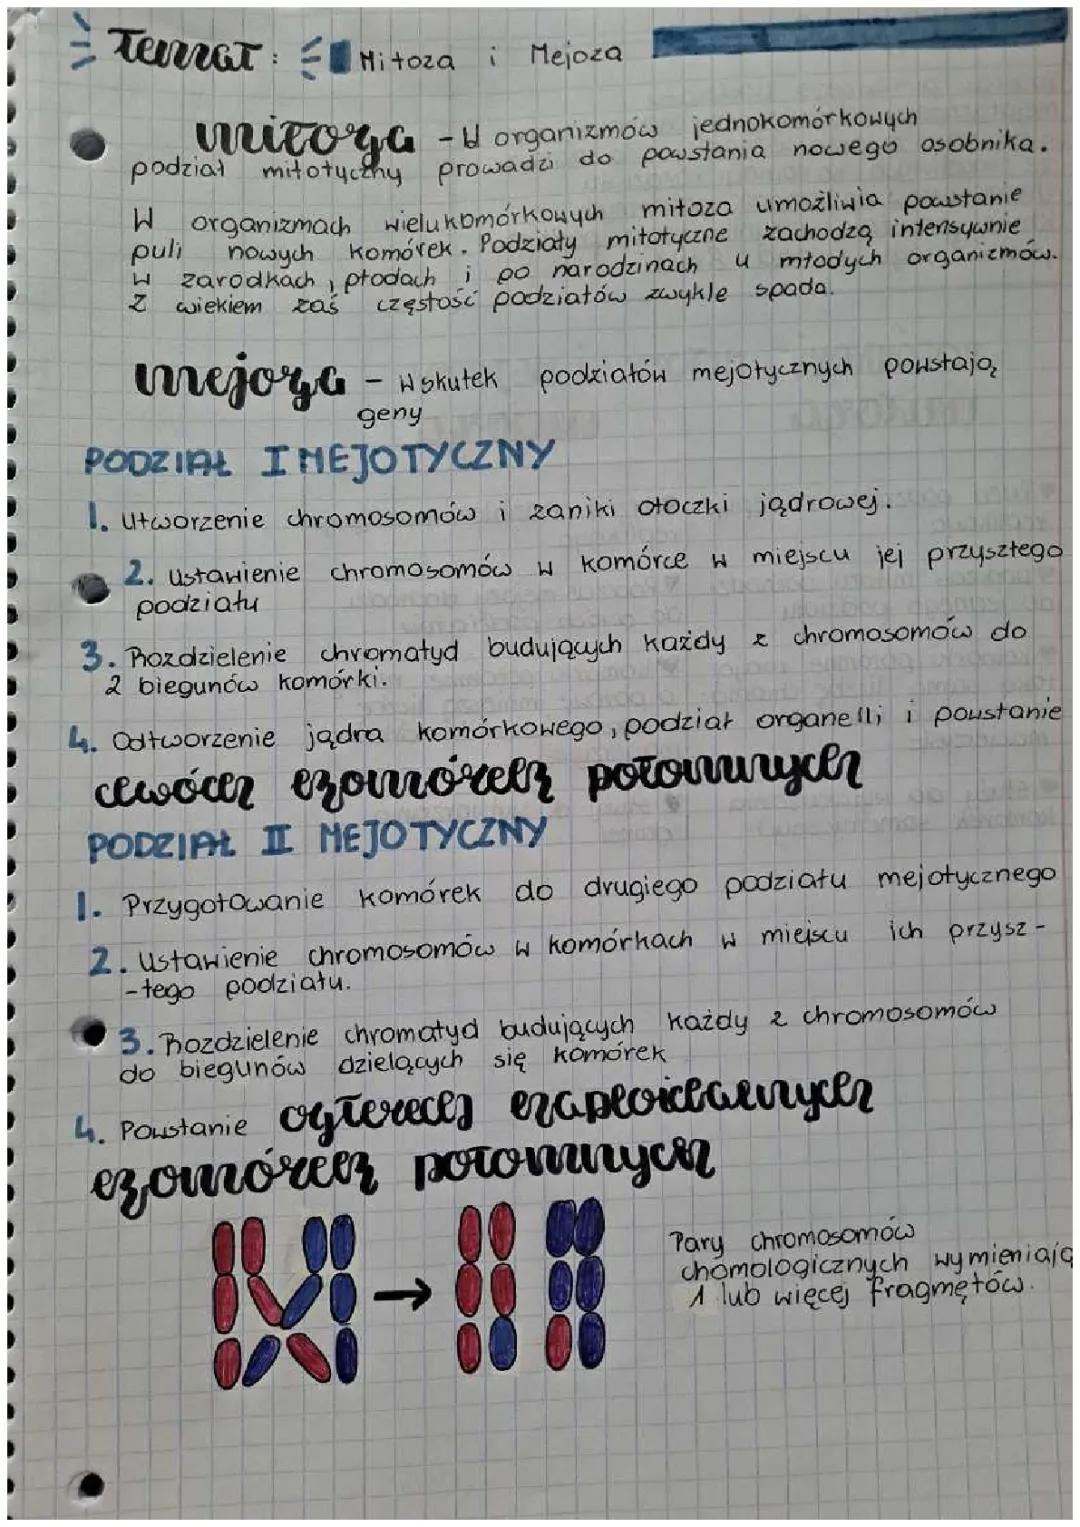 Temat: Mitoza i Mejoza
mitoza - U organizmów jednokomórkowych
podział mitotyczny prowadzi do powstania nowego osobnika.
W organizmach wielukomórkowych mitoza umożliwia powstanie
puli nowych komórek. Podziały mitotyczne zachodzą intensywnie
w zarodkach, płodach i po narodzinach u młodych organizmów.
Z wiekiem zaś częstość podziałów zwykle spada.
mejoza - Wskutek podziałów mejotycznych powstają
geny
PODZIAŁ I MEJOTYCZNY
1. Utworzenie chromosomów i zaniki otoczki jądrowej.
2. Ustawienie chromosomów w komórce w miejscu jej przyszłego
podziału
3. Rozdzielenie chromatyd budujących każdy z chromosomów do
2 biegunów komórki.
4. Odtworzenie jądra komórkowego, podział organelli i powstanie
potomnych
PODZIAŁ II MEJOTYCZNY
1. Przygotowanie komórek do drugiego podziału mejotycznego
2. Ustawienie chromosomów w komórkach w miejscu ich przysz-
-łego podziału.
3. Rozdzielenie chromatyd budujących każdy z chromosomów
do biegunów dzielących się komórek
4. Powstanie
potomnych
Pary chromosomów
chomologicznych wymieniają
1 lub więcej fragmętów.